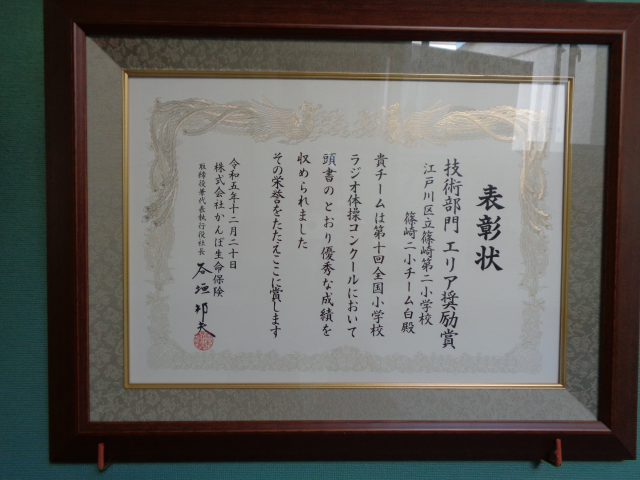 表彰状
技術部門 エリア奨励賞
江戸川区立篠崎第二小学校
篠崎二小チーム白殿
貴チームは第十回全国小学校
ラジオ体操コンクールにおいて
頭書のとおり優秀な成績を
収められました
その栄誉をたたえここに賞します
令和五年十二月二十日
株式会社かんぽ生命保険
取締役兼代表執行役社長 谷垣邦夫